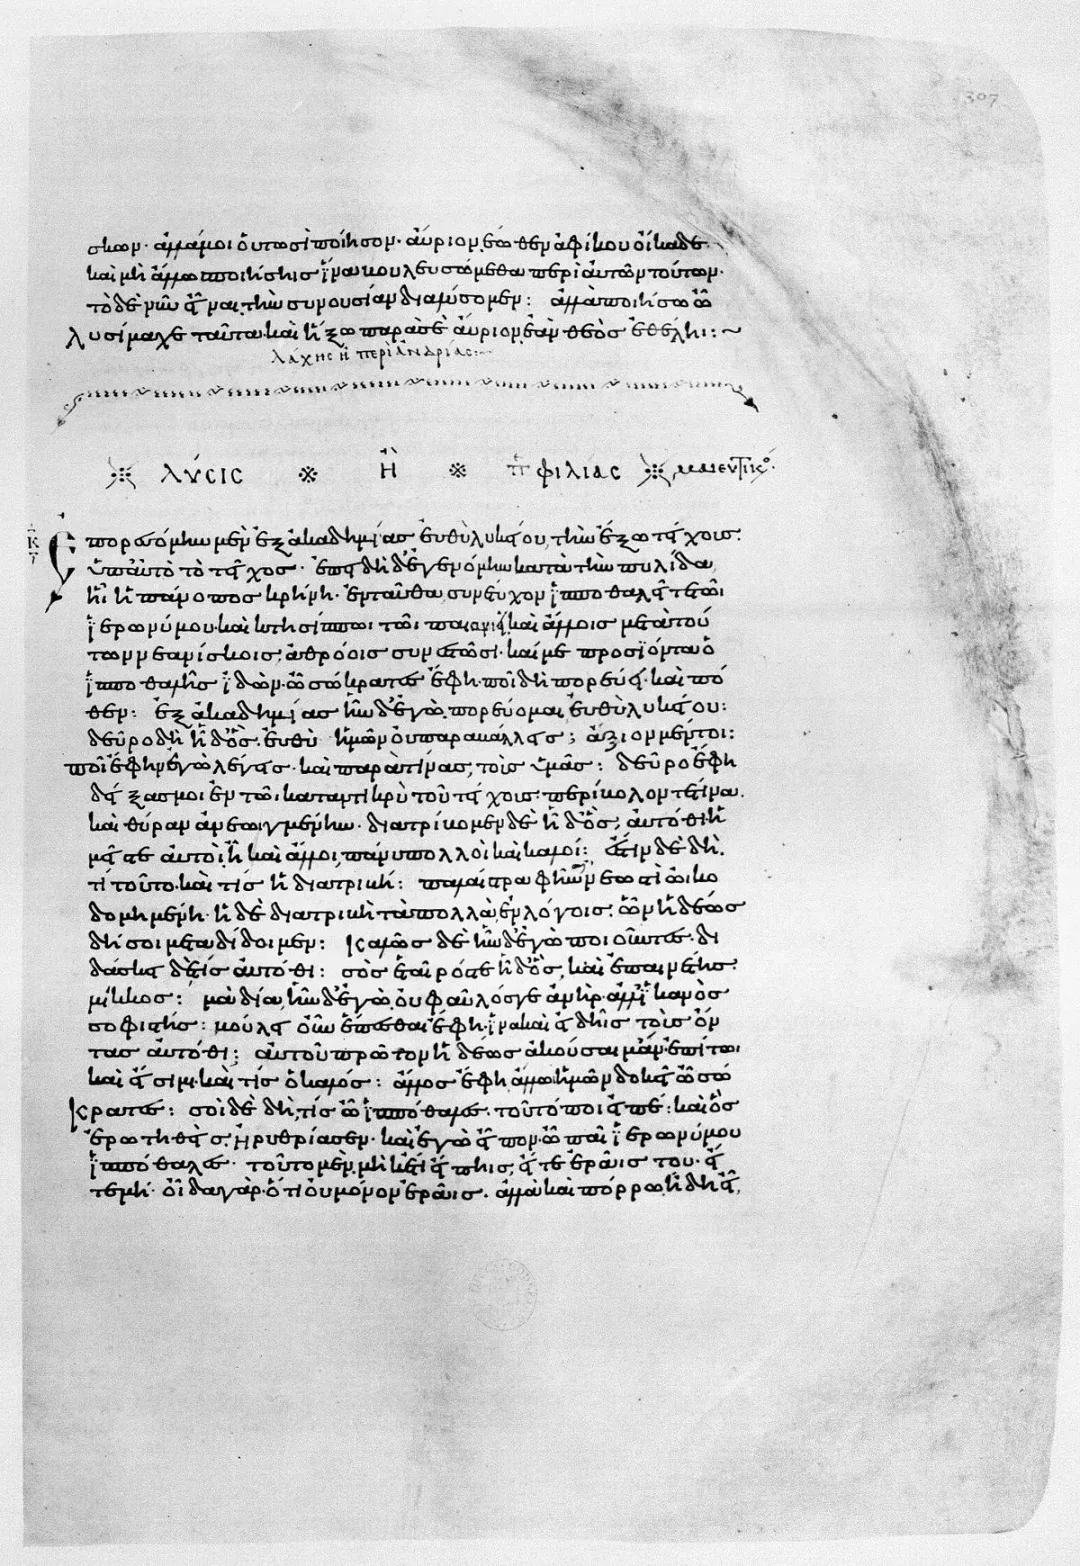 307
σκων· ἀλλά μοι οὑτωσὶ ποίησον· αὔριον ἕωθεν ἀφίκου οἴκαδε
καὶ μὴ ἄλλως ποιήσῃς ἵνα βουλευσώμεθα περὶ αὐτῶν τούτων·
τὸ δὲ νῦν εἶναι τὴν συνουσίαν διαλύσομεν: ἀλλὰ ποιήσω ὦ
λυσίμαχε ταῦτα καὶ ἥξω παρὰ σὲ αὔριον ἐὰν θεὸς ἐθέλῃ:~
λάχης ἢ περὶ ἀνδρίας:
λύσις ※ ἢ ※ π φιλίας ※ μαιευτικός·
κ
Ἐπορευόμην μὲν ἐξ ἀκαδημίας εὐθὺ λυκείου, τὴν ἔξω τείχους
ὑπ' αὐτὸ τὸ τεῖχος· ἐπειδὴ δ' ἐγενόμην κατὰ τὴν πυλίδα
ἧι ἡ πάνοπος κρήνη· ἐνταῦθα συνέτυχον ἱπποθαλεῖ τε τῶι
ἱερωνύμου καὶ κτησίππωι τῶι παιανιεῖ καὶ ἄλλοις μετὰ τού
των νεανίσκοις ἀθρόοις συνεστῶσι· καί με προσϊόντα ὁ
ἱπποθαλῆς ἰδών· ὦ σώκρατες ἔφη· ποῖ δὴ πορεύει· καὶ πό
θεν: ἐξ ἀκαδημίας ἦν δ' ἐγώ, πορεύομαι εὐθὺ λυκείου:
δεῦρο δὴ ἦ δ' ὅς· εὐθὺ ἡμῶν· οὐ παραβάλλεις; ἄξιον μέντοι:
ποῖ ἔφην ἐγὼ λέγεις· καὶ παρὰ τίνας τοὺς ὑμᾶς: δεῦρο ἔφη
δείξας μοι ἐν τῶι καταντικρὺ τοῦ τείχους· περίβολόν τέ τινα
καὶ θύραν ἀνεωιγμένην· διατρίβομεν δὲ ἦ δ' ὅς, αὐτόθι ἡ
μεῖς τε αὐτοὶ καὶ ἄλλοι πάνυ πολλοὶ καὶ καλοί: ἔστιν δὲ δὴ
τί τοῦτο· καὶ τίς ἡ διατριβή: παλαίστρα ἔφη νεωστὶ ὠικο
δομημένη· ἡ δὲ διατριβὴ τὰ πολλὰ ἐν λόγοις· ὧν ἡδέως
δή σοι μεταδίδοιμεν: Καλῶς δὲ ἦν δ' ἐγὼ ποιοῦντες· δι
δάσκει δὲ τίς αὐτόθι: σὸς ἑταῖρός γε ἦ δ' ὅς, καὶ ἐπαινέτης
μίκκος: μὰ δία ἦν δ' ἐγώ, οὐ φαῦλός γε ἀνήρ· ἀλλ' ἱκανὸς
σοφιστής: βούλει οὖν ἕπεσθαι ἔφη· ἵνα καὶ εἰδῆις τοὺς ὄν
τας αὐτόθι; αὐτοῦ πρῶτον ἡδέως ἀκούσαιμ' ἄν· ἐπὶ τῶι
καὶ εἴσειμι· καὶ τίς ὁ καλός: ἄλλος ἔφη ἄλλωι ἡμῶν δοκεῖ ὦ σώ
Κρατες: σοὶ δὲ δὴ τίς ὦ ἱππόθαλες· τοῦτό μοι εἰπέ: καὶ ὃς
ἐρωτηθεὶς ἠρυθρίασεν· καὶ ἐγὼ εἶπον· ὦ παῖ ἱερωνύμου
ἱππόθαλες· τοῦτο μὲν μηκέτι εἴπηις, εἴτε ἐρᾶις του· εἴ
τε μή· οἶδα γὰρ ὅτι οὐ μόνον ἐρᾶις· ἀλλὰ καὶ πόρρω ἤδη εἶ